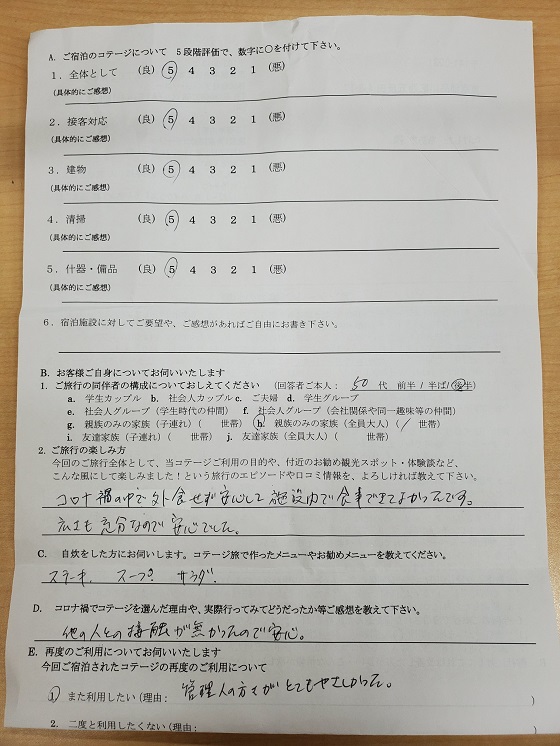 A. ご宿泊のコテージについて 5段階評価で、数字に○を付けて下さい。
1. 全体として (良) 5 4 3 2 1 (悪)
(具体的にご感想)
2. 接客対応 (良) 5 4 3 2 1 (悪)
(具体的にご感想)
3. 建物 (良) 5 4 3 2 1 (悪)
(具体的にご感想)
4. 清掃 (良) 5 4 3 2 1 (悪)
(具体的にご感想)
5. 什器・備品 (良) 5 4 3 2 1 (悪)
(具体的にご感想)
6. 宿泊施設に対してご要望や、ご感想があればご自由にお書き下さい。
B. お客様ご自身についてお伺いいたします
1. ご旅行の同伴者の構成についておしえてください (回答者ご本人: 50 代 前半/半ば/後半)
a. 学生カップル b. 社会人カップル c. ご夫婦 d. 学生グループ
e. 社会人グループ(学生時代の仲間) f. 社会人グループ(会社関係や同一趣味等の仲間)
g. 親族のみの家族(子連れ)( 世帯) h. 親族のみの家族(全員大人)(1 世帯)
i. 友達家族(子連れ)( 世帯) j. 友達家族(全員大人)( 世帯)
2. ご旅行の楽しみ方
今回のご旅行全体として、当コテージご利用の目的や、付近のお勧め観光スポット・体験談など、
こんな風にして楽しみました!という旅行のエピソードや口コミ情報を、よろしければ教えて下さい。
コロナ禍の中で外食せず安心して施設内で食事できてよかったです。
広さも充分なので安心でした。
C. 自炊をした方にお伺いします。コテージ旅で作ったメニューやお勧めメニューを教えてください。
ステーキ、スープ、サラダ、
D. コロナ禍でコテージを選んだ理由や、実際行ってみてどうだったか等ご感想を教えて下さい。
他の人との接触が無かったので安心。
E. 再度のご利用についてお伺いいたします
今回ご宿泊されたコテージの再度のご利用について
1) また利用したい(理由: 管理人の方々がとてもやさしかった。 )
2. 二度と利用したくない(理由: )